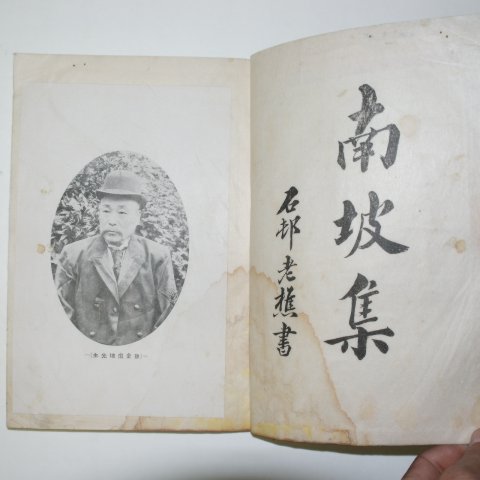 南坡集
石邨老樵書